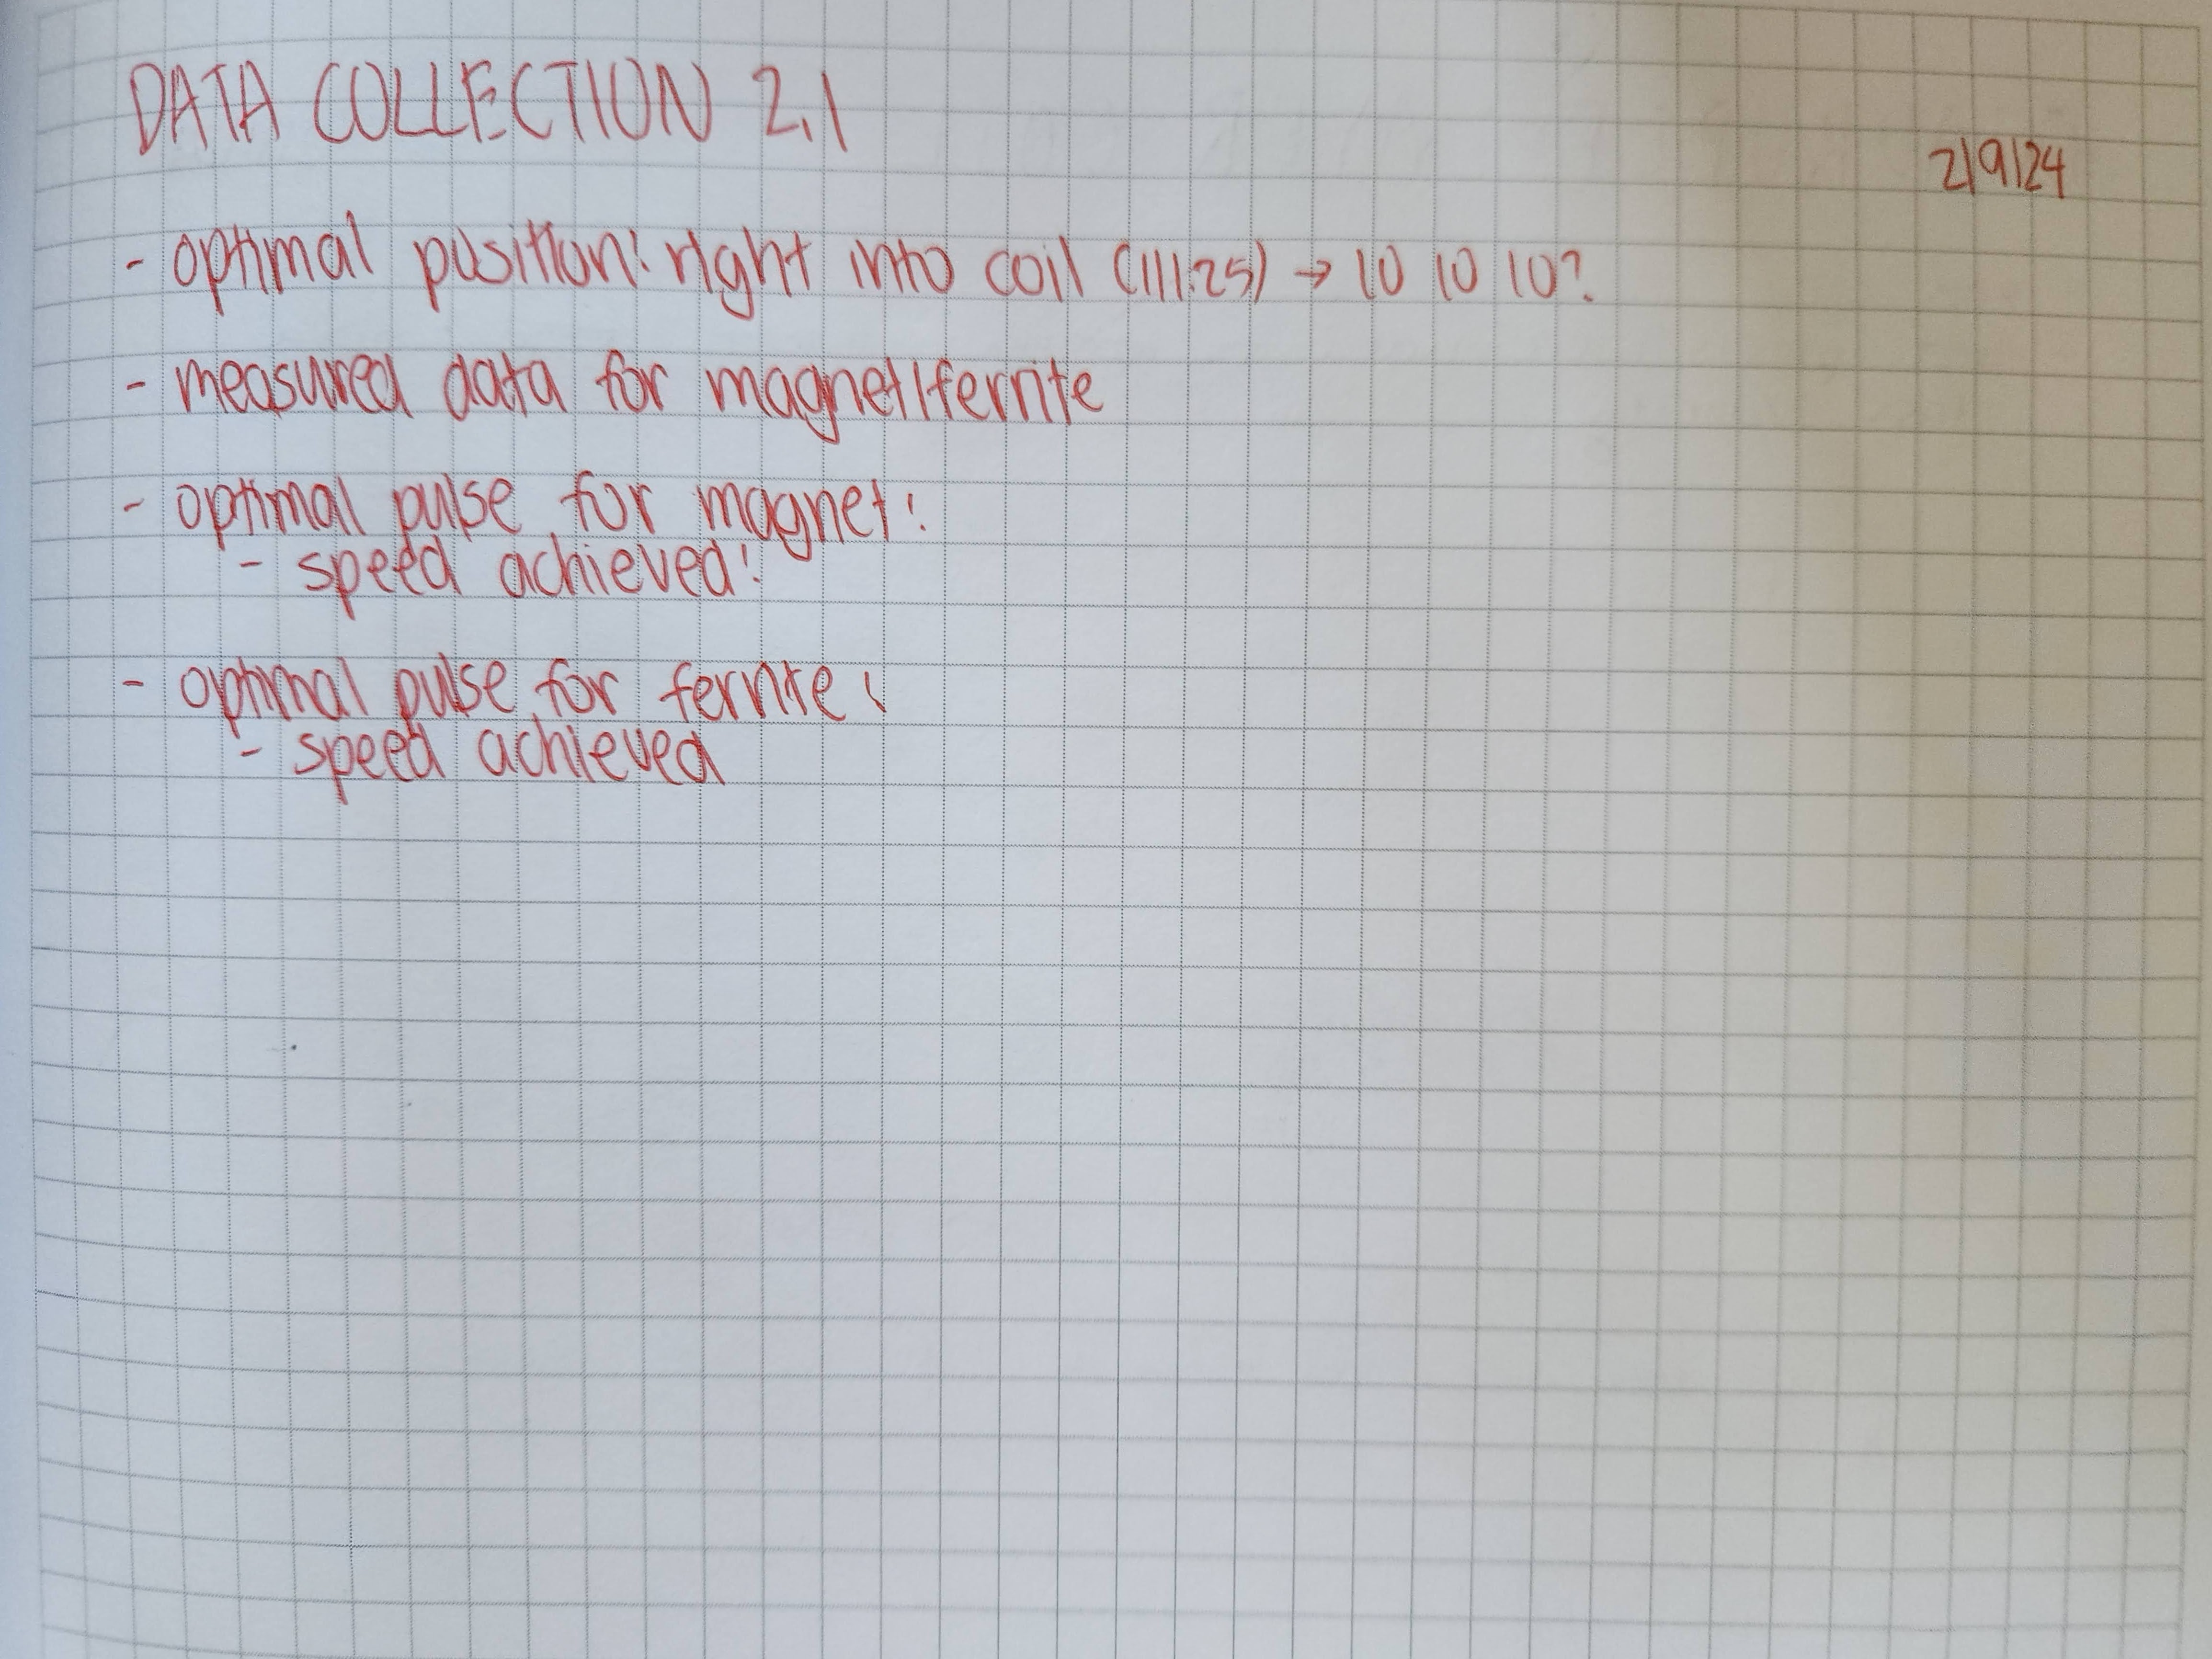 DATA COLLECTION 2.1
2/9/24
- optimal position: right into coil (111.25) → 10 10 10?
- measured data for magnet/ferrite
- optimal pulse for magnet:
- speed achieved:
- optimal pulse for ferrite:
- speed achieved